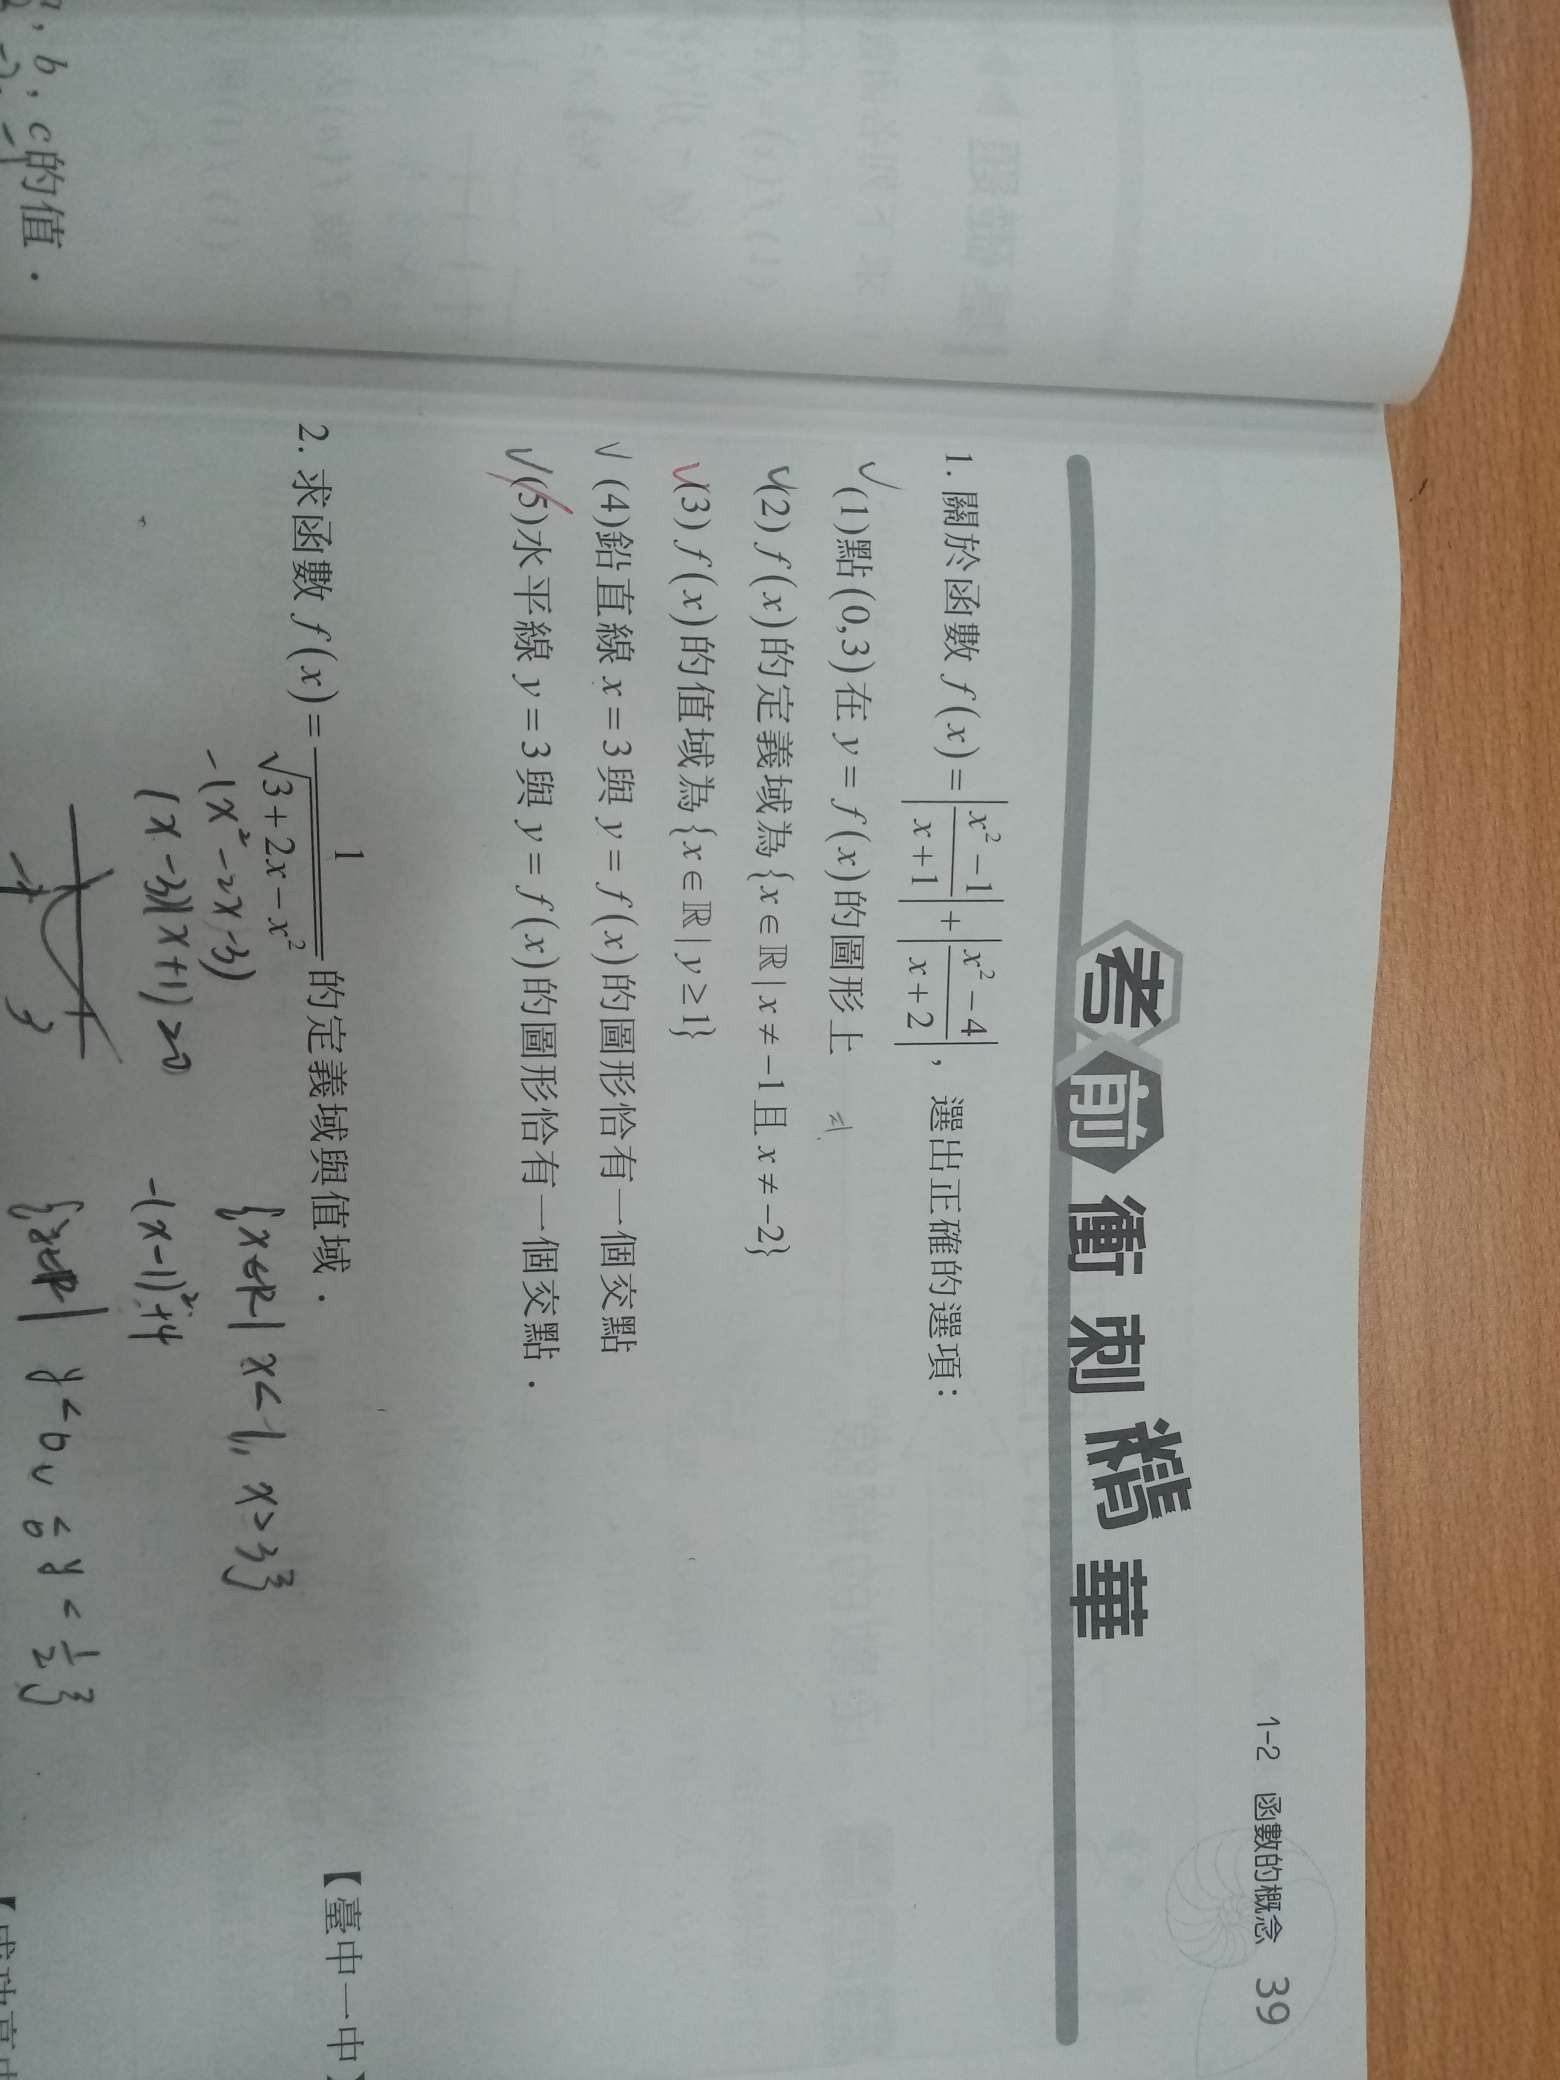 1-2 函數的概念 39
考前衝刺精華
1. 關於函數 f(x)=|x²-1/x+1|+|x²-4/x+2|，選出正確的選項：
✓(1)點(0,3)在 y=f(x)的圖形上
✓(2) f(x)的定義域為{x∈ℝ|x≠-1且x≠-2}
✓(3) f(x)的值域為{x∈ℝ|y≥1}
✓(4)鉛直線 x=3與 y=f(x)的圖形恰有一個交點
✓(5)水平線 y=3與 y=f(x)的圖形恰有一個交點．
2. 求函數 f(x)=1/√3+2x-x² 的定義域與值域．
【臺中一中】
-(x²-2x-3)
{x∈R| x<-1, x>3}
(x-3)(x+1)≥0
-(x-1)²+4
-1 3
b，c的值．